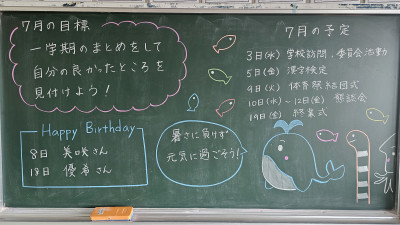 7月の目標
一学期のまとめをして
自分の良かったところを
見付けよう！
Happy Birthday
8日 美咲さん
18日 優希さん
暑さに負けず
元気に過ごそう！
7月の予定
3日(水) 学校訪問、委員会活動
5日(金) 漢字検定
9日(火) 体育祭結団式
10日(水)～12日(金) 懇談会
19日(金) 終業式